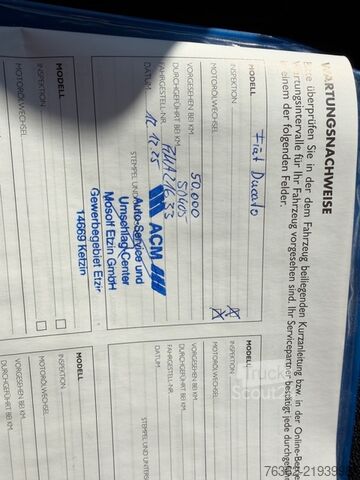 WARTUNGSNACHWEISE
Bitte überprüfen Sie in der dem Fahrzeug beiliegenden Kurzanleitung bzw. in der Online-
Wartungsintervalle für Ihr Fahrzeug vorgesehen sind. Ihr Servicepartner bestätigt jede
in einem der folgenden Felder.
MODELL Fiat Ducato
INSPEKTION
MOTORÖLWECHSEL
VORGESEHEN BEI KM. 50.000
DURCHGEFÜHRT BEI KM.
FAHRGESTELL-NR.
DATUM
STEMPEL UND
ACM
Auto-Service und
Umschlag-Center
Mosolf Etzin GmbH
Gewerbegebiet Etzin
14669 Ketzin
MODELL
INSPEKTION
MOTORÖLWECHSEL
VORGESEHEN BEI KM.
DURCHGEFÜHRT BEI KM.
FAHRGESTELL-NR.
DATUM
STEMPEL UND
MODELL
INSPEKTION
MOTORÖLWECHSEL
MODELL
INSPEKTION
MOTORÖLWECHSEL
VORGESEHEN BEI KM.
DURCHGEFÜHRT BEI KM.
Truck
Scout24